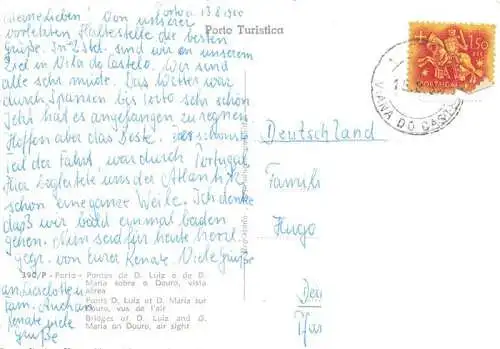 meine Lieben!
Porto 13.8.1960
Von unserer
vorletzten Haltestelle die besten
Grüße. In 2 Std. sind wir an unserem
Ziel in Vila do Castelo. Wir sind
alle sehr müde. Das Wetter war
durch Spanien bis Porto sehr schön
Jetzt hat es angefangen zu regnen
Hoffen aber das Beste. Der schönste
Teil der Fahrt, war durch Portugal
Hier begleitete uns der Atlantik
schon eine ganze Weile. Ich denke
daß wir bald einmal baden
gehen. Nun seid für heute herzl.
gegr. von Eurer Renate Viele Grüße
an Lieselotte u.
Fam.
Renate viele
Grüße
Porto Turística
390/P - Porto - Pontes de D. Luiz e de D.
Maria sobre o Douro, vista
aérea
Ponts D. Luiz et D. Maria sur
Douro, vus de l'air
Bridges of D. Luiz and D.
Maria on Douro, air sight
1$50
CORREIO PORTUGAL
VIANA DO CASTELO
Deutschland
Familie
Hugo